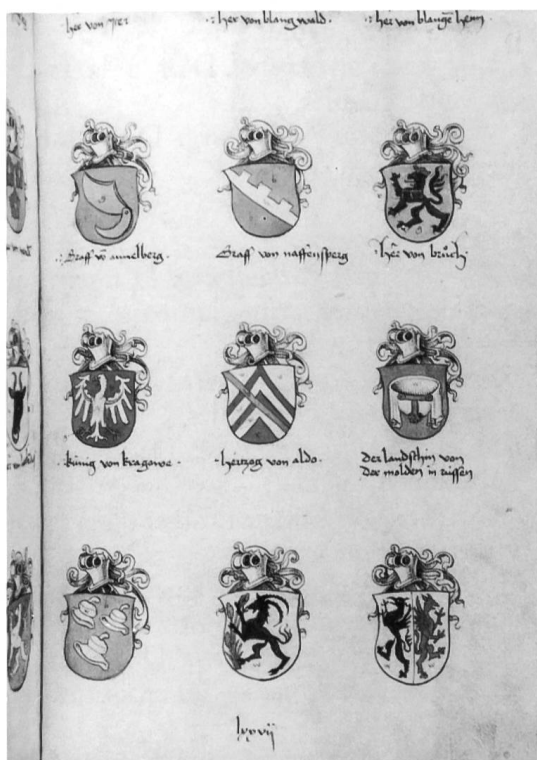 her von
·: her von blang wald ·
·: her von blange henn ·
·: Graff vo annelberg ·
Graff von naffensperg
· her von bruch ·
· künig von kragowe ·
· hertzog von aldo ·
der landsthin von
der molden in rüssen
lxxvij